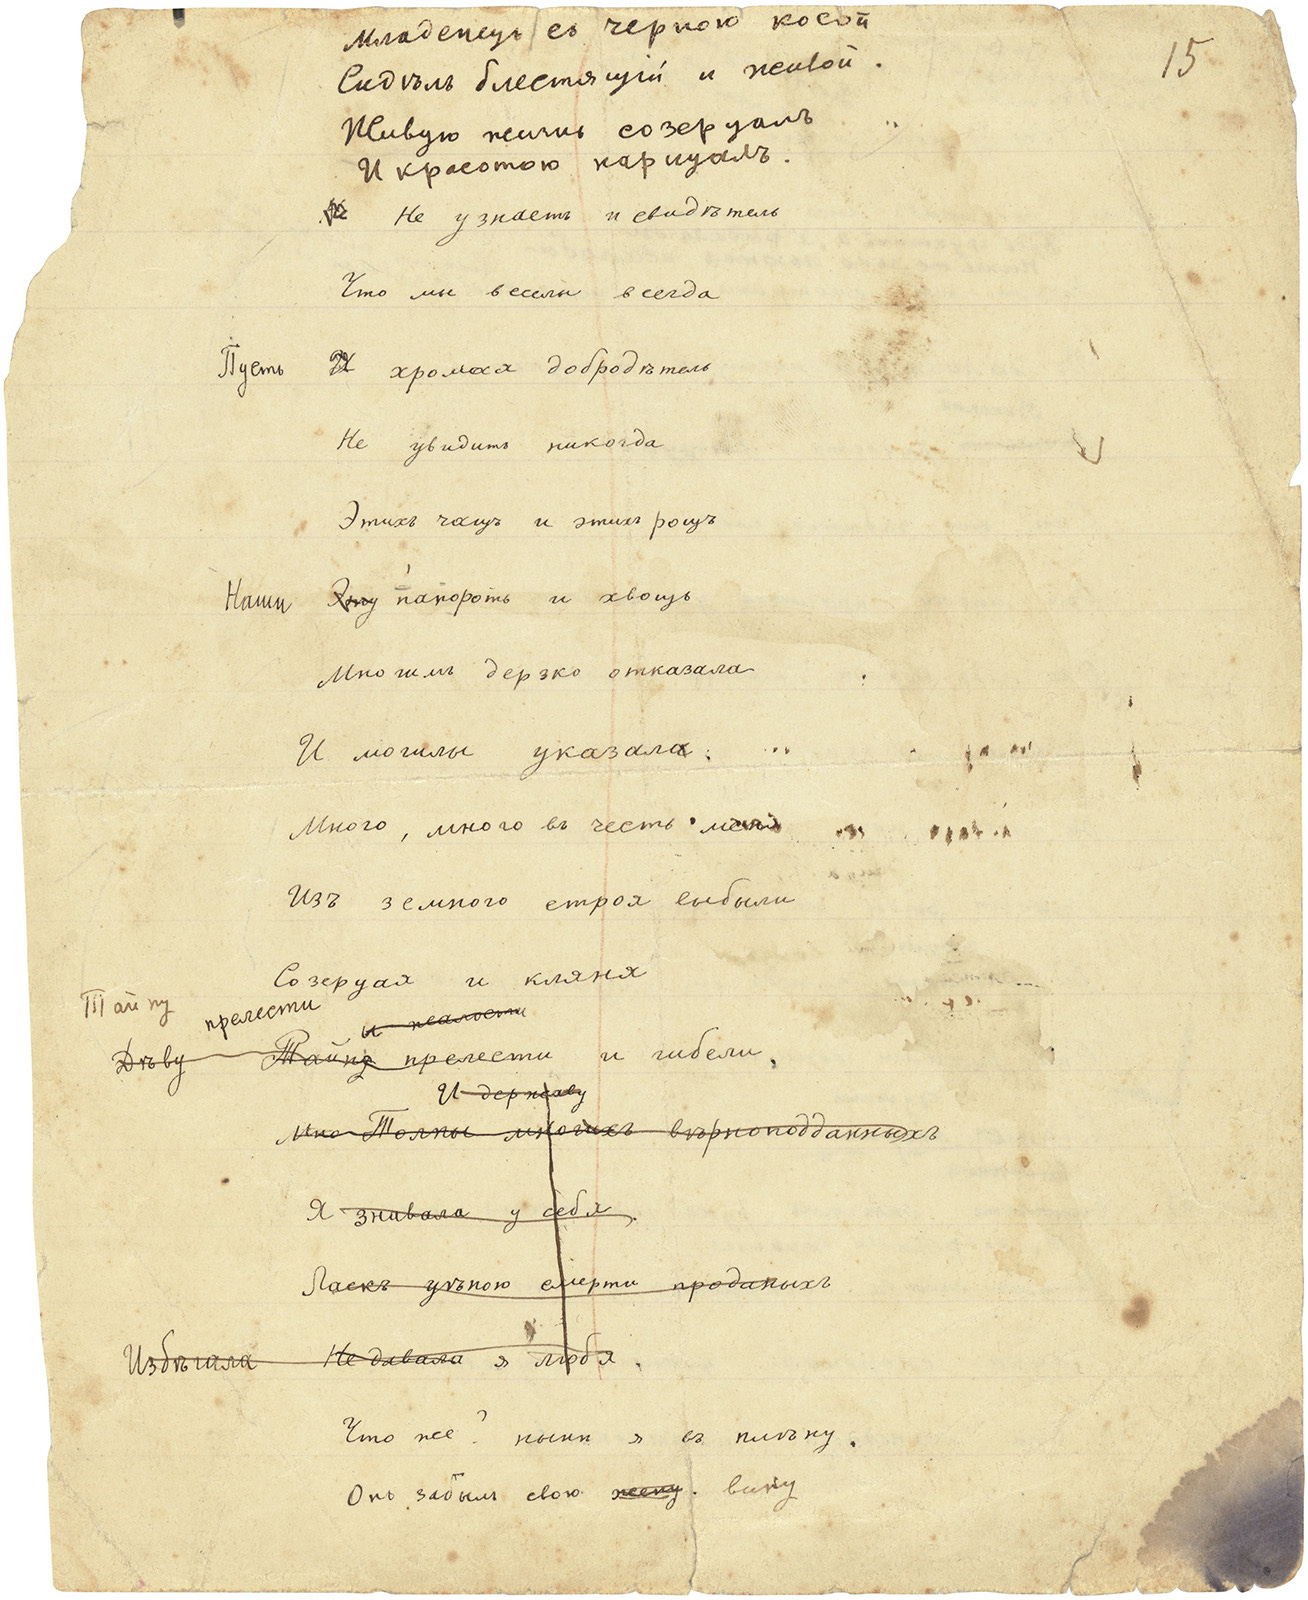 15
Младенецъ съ черною косой
Сидѣлъ блестящій и живой.
Живую жизнь созерцалъ
И красотою нарицалъ.
Не узнаетъ и свидѣтель
Что мы веселы всегда
Пусть И хромая добродѣтель
Не увидитъ никогда
Этихъ чащъ и этихъ рощъ
Наши Эту папороть и хвощъ
Многимъ дерзко отказала
И могилы указала.
Много, много въ честь меня
Изъ земного строя выбыли
Созерцая и кляня
Тайну прелести и жалости
Дѣву Тайну прелести и гибели.
И державу
Мно Толпы многихъ вѣрноподданныхъ
Я знавала у себя.
Ласкъ цѣною смерти проданыхъ
Избѣгала Не давала я любя.
Что же? нынѣ я въ плѣну.
Онъ забылъ свою жену. вину